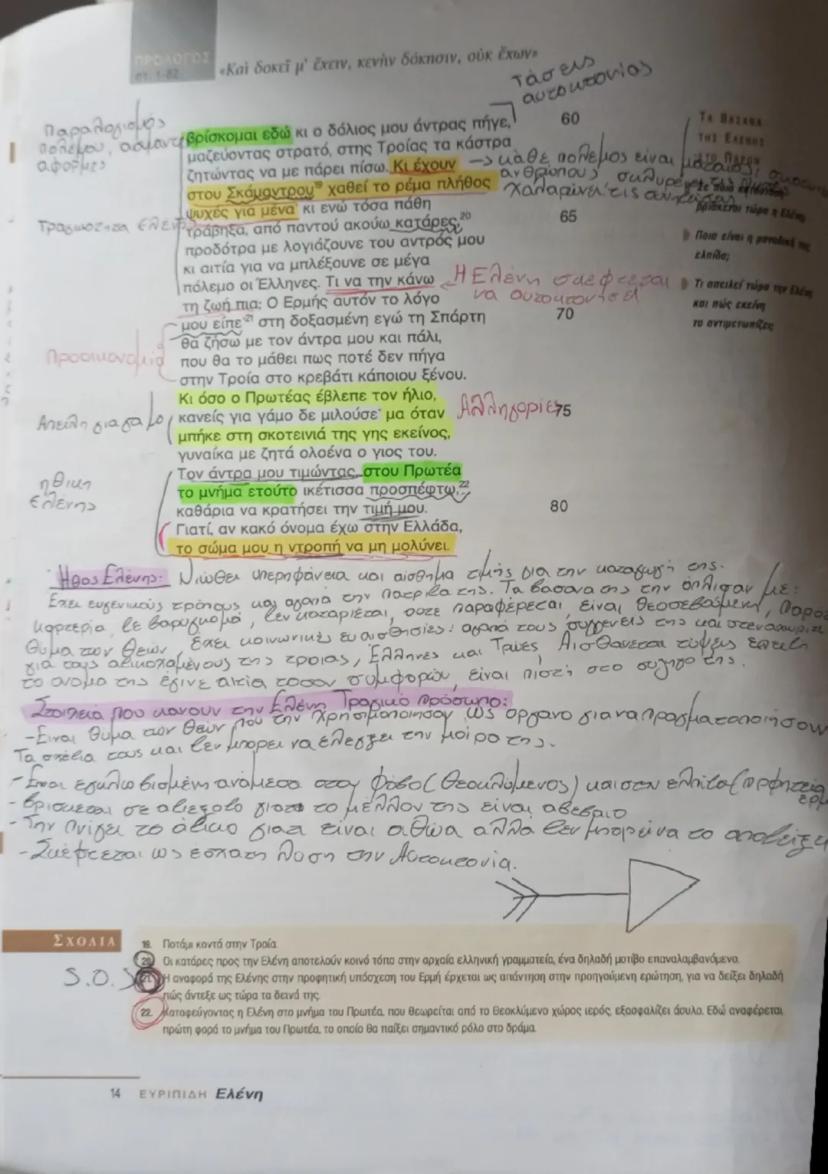 ΠΡΟΛΟΓΟΣ
στ. 1-82
«Καὶ δοκεῖ μ' ἔχειν, κενὴν δόκησιν, οὐκ ἔχων»
τάσεις
αυτοκτονίας
Παραλογισμός
πολέμου, ασήμαντες
αφορμές
βρίσκομαι εδώ κι ο δόλιος μου άντρας πήγε,
60
μαζεύοντας στρατό, στης Τροίας τα κάστρα
ζητώντας να με πάρει πίσω. Κι έχουν
→ κάθε πόλεμος είναι μάταιος:
στου Σκάμαντρου¹⁹ χαθεί το ρέμα πλήθος
ανθρώπους, σκληραίνει
ψυχές για μένα· κι ενώ τόσα πάθη
χαλαρώνει τις
Τραγικότητα Ελένης
τράβηξα, από παντού ακούω κατάρες·²⁰
65
προδότρα με λογιάζουνε του αντρός μου
κι αιτία για να μπλέξουνε σε μέγα
πόλεμο οι Έλληνες. Τι να την κάνω
Η Ελένη σκέφτεται
να αυτοκτονήσει
τη ζωή πια; Ο Ερμής αυτόν το λόγο
μου είπε·²¹ στη δοξασμένη εγώ τη Σπάρτη
70
θα ζήσω με τον άντρα μου και πάλι,
Προοικονομία
που θα το μάθει πως ποτέ δεν πήγα
στην Τροία στο κρεβάτι κάποιου ξένου.
Κι όσο ο Πρωτέας έβλεπε τον ήλιο,
Απειλή για γάμο
κανείς για γάμο δε μιλούσε· μα όταν
Αλληγορίες
75
μπήκε στη σκοτεινιά της γης εκείνος,
γυναίκα με ζητά ολοένα ο γιος του.
Τον άντρα μου τιμώντας, στου Πρωτέα
ηθική
Ελένης
το μνήμα ετούτο ικέτισσα προσπέφτω,²²
καθάρια να κρατήσει την τιμή μου.
80
Γιατί, αν κακό όνομα έχω στην Ελλάδα,
το σώμα μου η ντροπή να μη μολύνει.
ΤΑ ΒΑΣΑΝΑ
ΤΗΣ ΕΛΕΝΗΣ
ΣΤΟ ΠΑΡΟΝ
βρίσκεται τώρα η Ελένη
Ποια είναι η μοναδική της
ελπίδα;
Τι απειλεί τώρα την Ελένη
και πώς εκείνη
το αντιμετωπίζει
Ήθος Ελένης: Νιώθει υπερηφάνεια και αίσθημα τιμής για την καταγωγή της.
Έχει ευγενικούς τρόπους και αγαπά την πατρίδα της. Τα βάσανα της την όπλισαν με:
καρτερία, δε βαρυγκομά, δεν καταριέται, ούτε παραφέρεται, είναι θεοσεβούμενη, παρόλο
θύμα των θεών. Έχει κοινωνικές ευαισθησίες: αγαπά τους συγγενείς της και στεναχωριέται
για τους αδικοχαμένους της τροίας, Έλληνες και Τρώες. Αισθάνεται τύψεις επειδή
το όνομα της έγινε αιτία τόσων συμφορών, είναι πιστή στο σύζυγο της.
Στοιχεία που κάνουν την Ελένη Τραγικό πρόσωπο:
-Είναι θύμα των θεών που την χρησιμοποίησαν ως όργανο για να πραγματοποιήσουν
Τα σχέδια τους και δεν μπορεί να ελέγξει την μοίρα της.
-Είναι εγκλωβισμένη ανάμεσα στον φόβο (Θεοκλύμενος) και στην ελπίδα (προφητεία
Ερμή
-Βρίσκεται σε αδιέξοδο γιατί το μέλλον της είναι αβέβαιο
-Την πνίγει το άδικο γιατί είναι αθώα αλλά δεν μπορεί να το αποδείξει
-Σκέφτεται ως έσχατη λύση την Αυτοκτονία.
ΣΧΟΛΙΑ
S.O.S
19. Ποτάμι κοντά στην Τροία.
20. Οι κατάρες προς την Ελένη αποτελούν κοινό τόπο στην αρχαία ελληνική γραμματεία, ένα δηλαδή μοτίβο επαναλαμβανόμενο.
21. Η αναφορά της Ελένης στην προφητική υπόσχεση του Ερμή έρχεται ως απάντηση στην προηγούμενη ερώτηση, για να δείξει δηλαδή
πώς άντεξε ως τώρα τα δεινά της.
22. Καταφεύγοντας η Ελένη στο μνήμα του Πρωτέα, που θεωρείται από το Θεοκλύμενο χώρος ιερός, εξασφαλίζει άσυλο. Εδώ αναφέρεται
πρώτη φορά το μνήμα του Πρωτέα, το οποίο θα παίξει σημαντικό ρόλο στο δράμα.
14 ΕΥΡΙΠΙΔΗ Ελένη